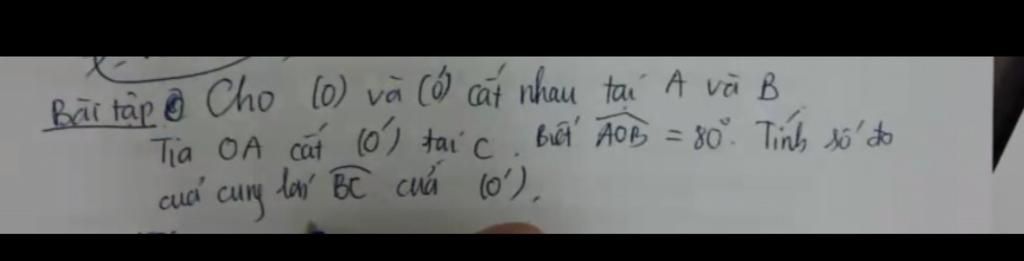 Bài tập Cho (O) và (O') cắt nhau tại A và B
Tia OA cắt (O') tại C. Biết AOB = 80°. Tính số đo
của cung lớn BC của (O').